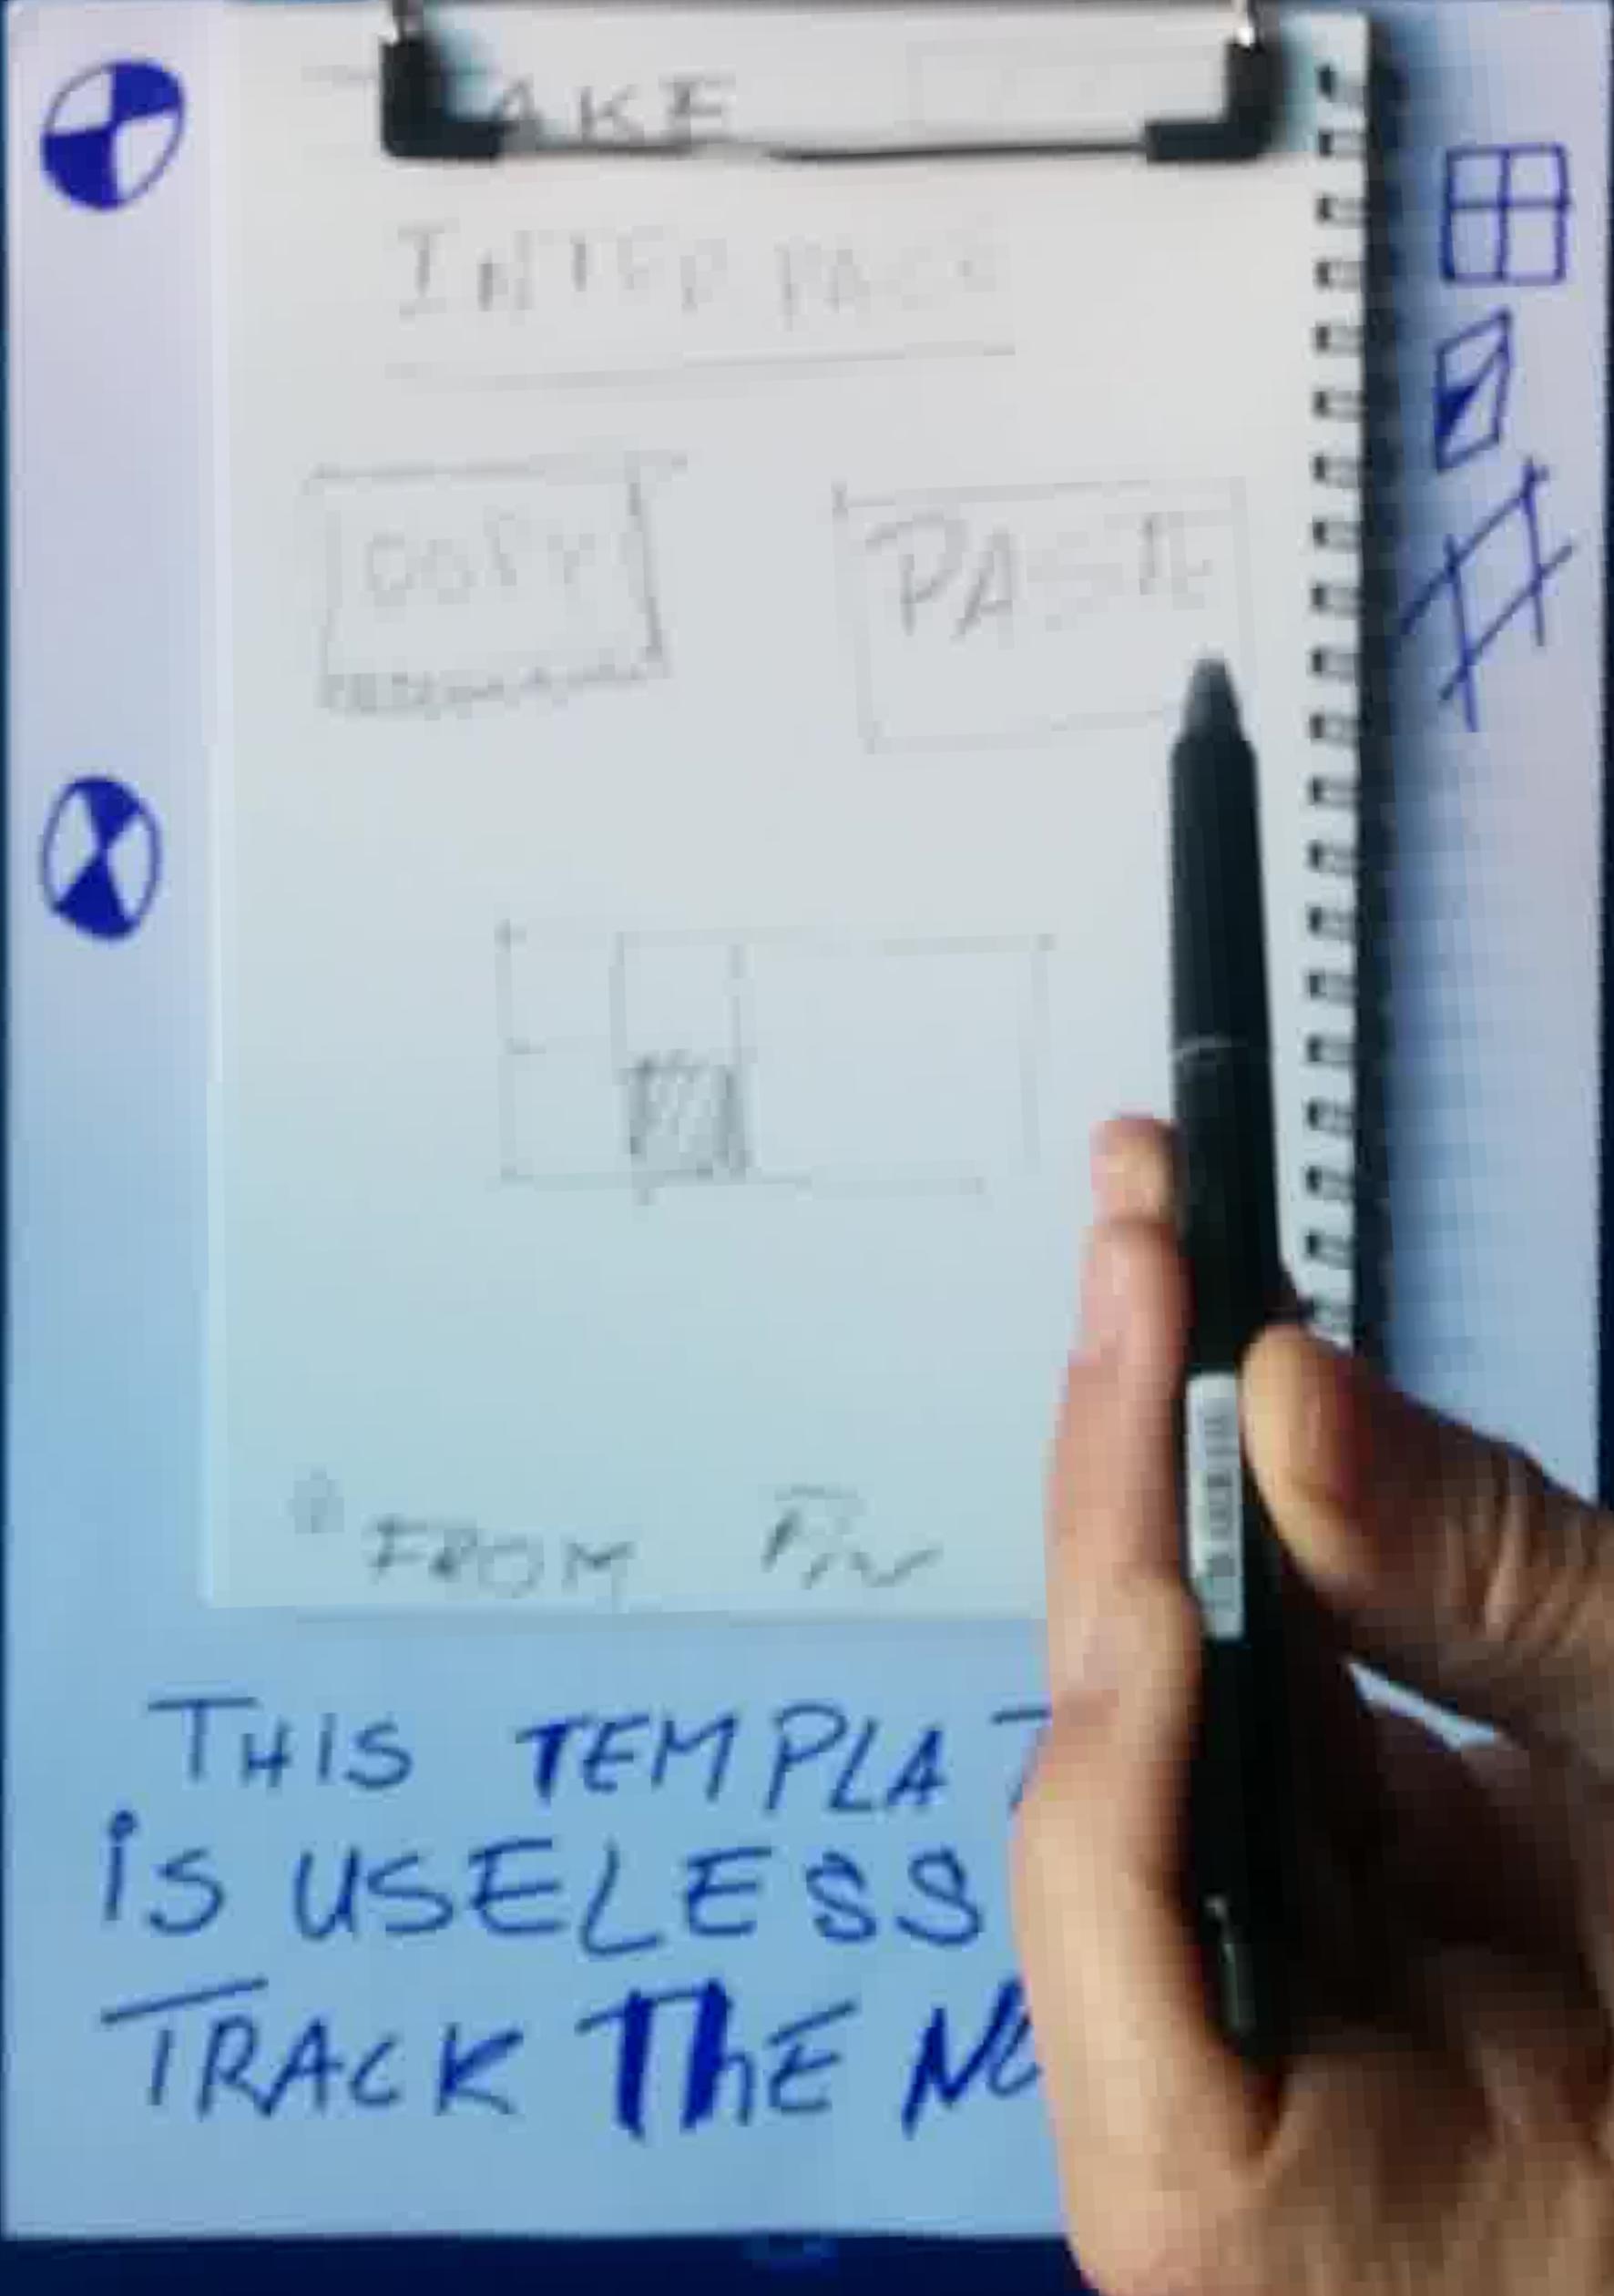 AKE
INTERFACE
COPY PASTE
FROM
THIS TEMPLAT
iS USELESS
TRACK ThE